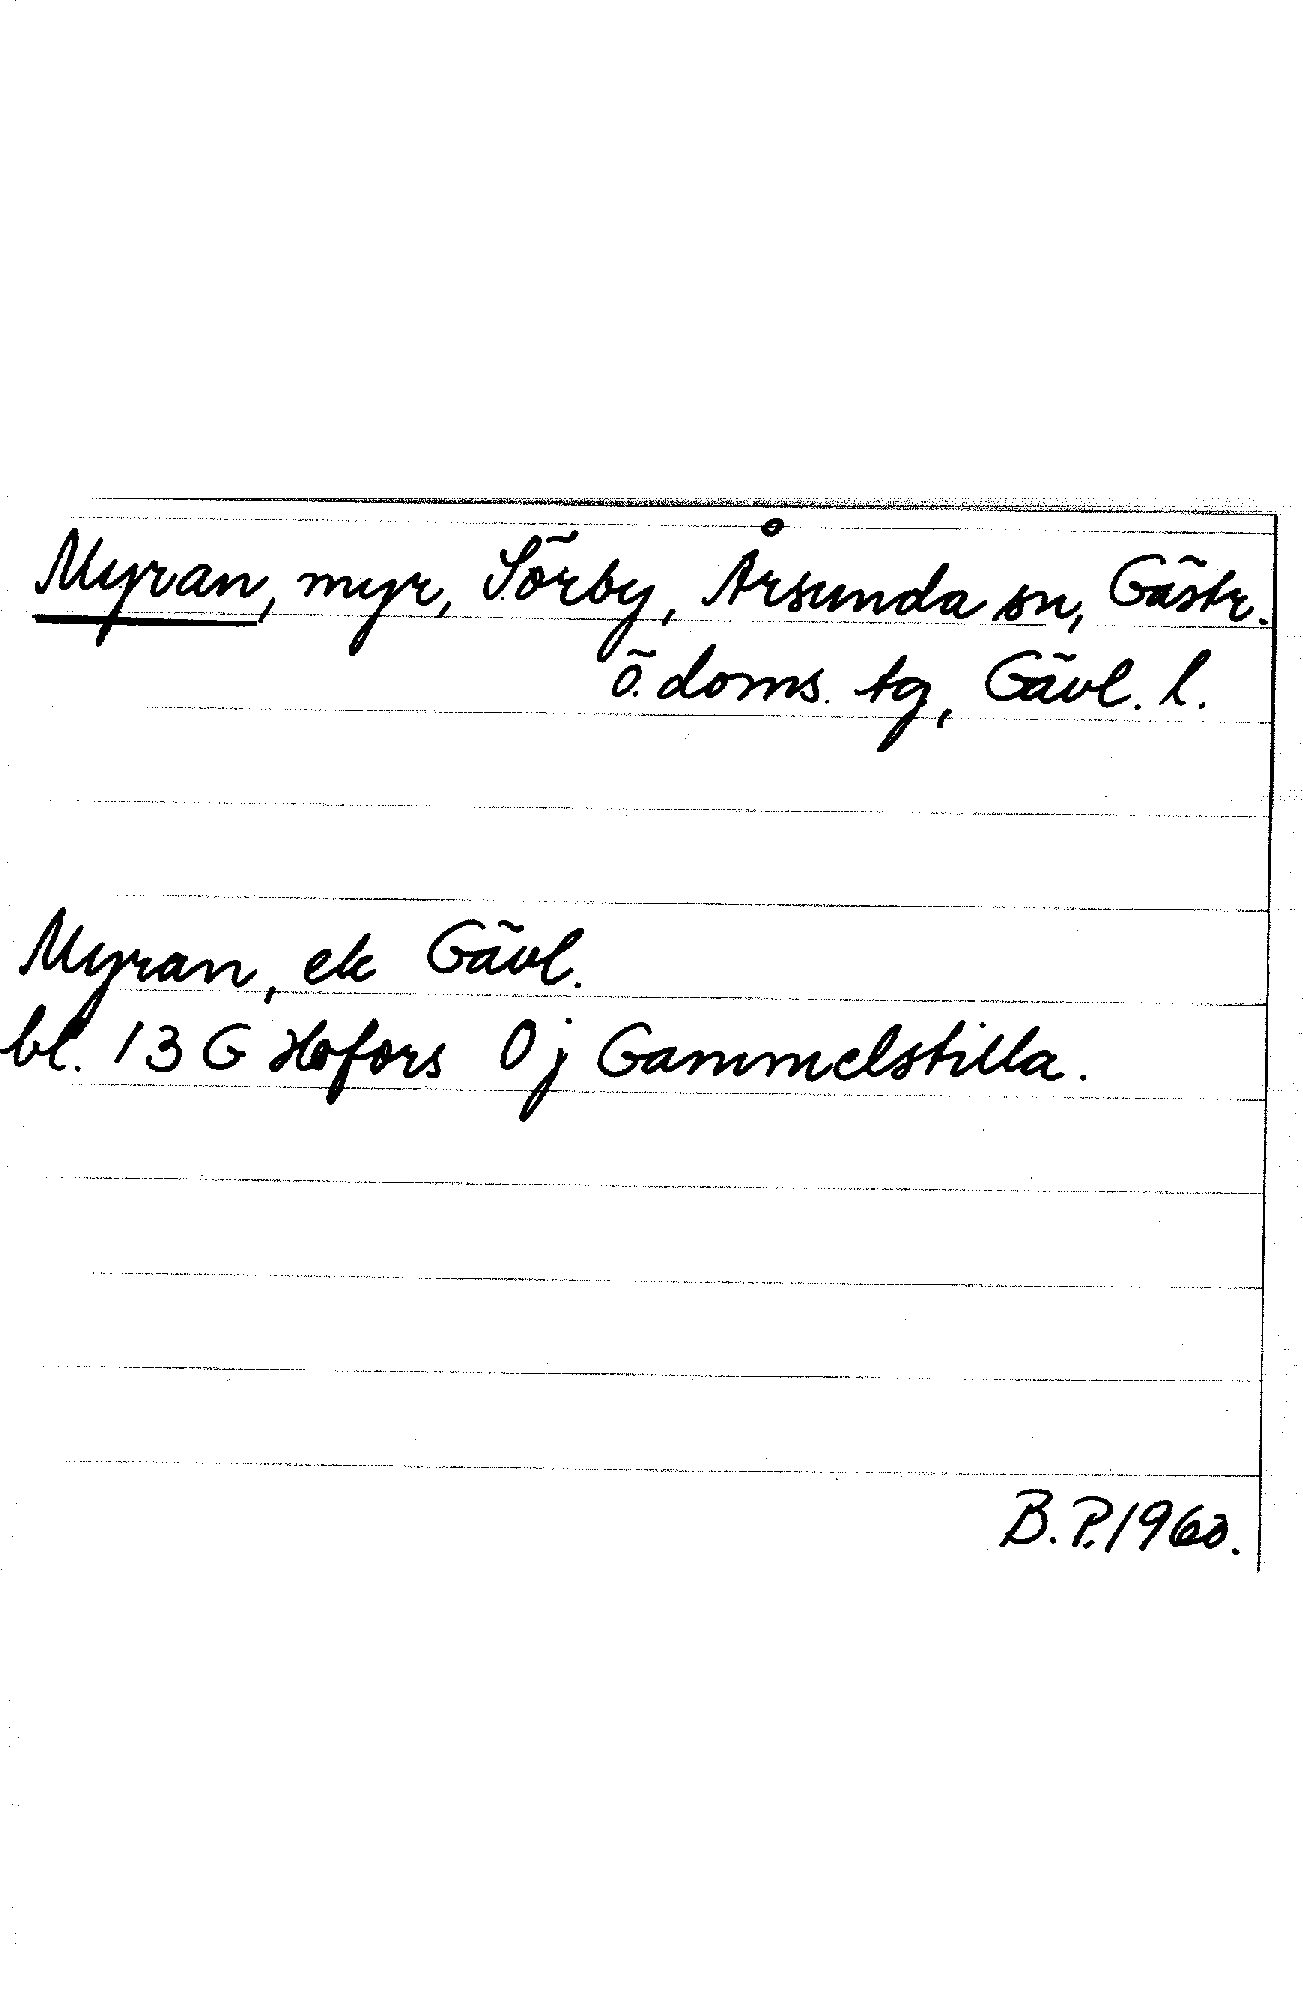 Myran, myr, Sörby, Årsunda sn, Gästr.
ö. doms. tg, Gävl. l.
Myran, ek Gävl.
bl. 13 G Hofors 0 j Gammelstilla.
B.P. 1960.